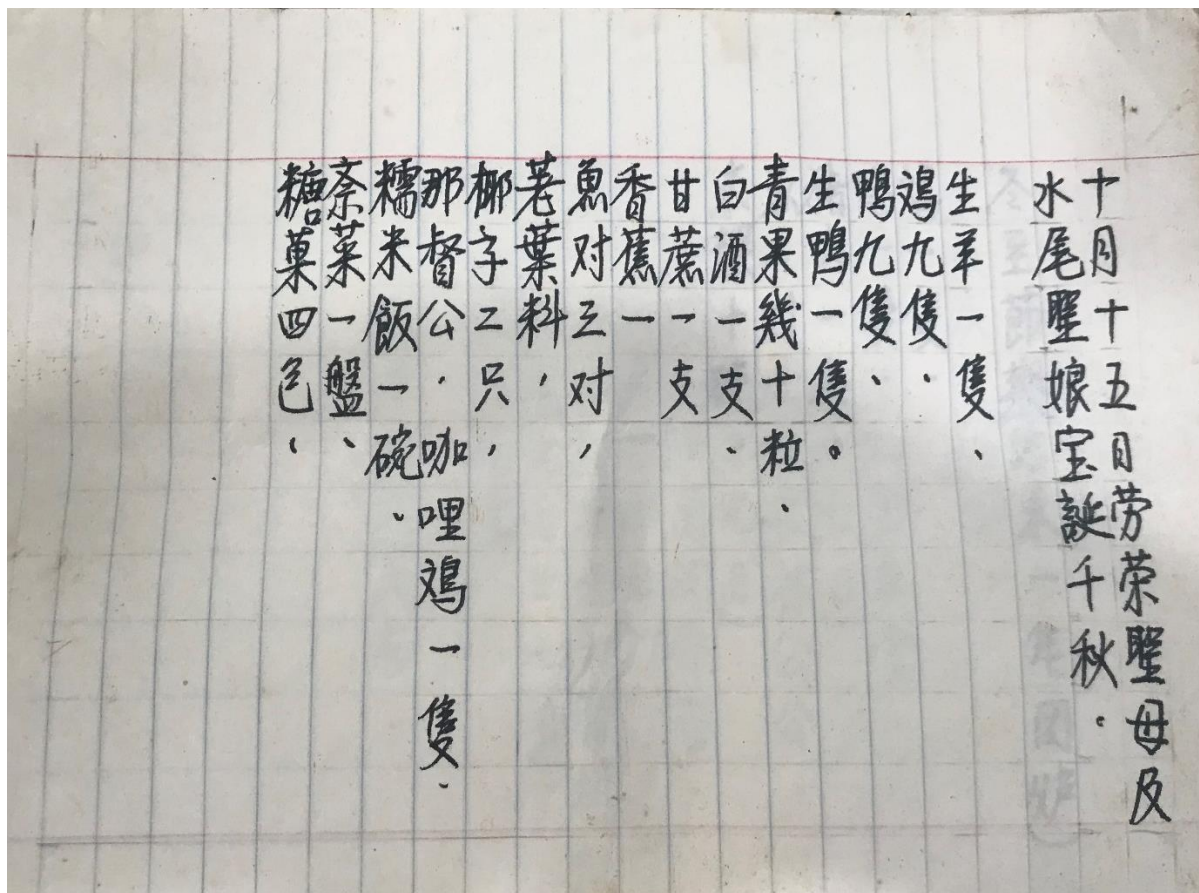 十月十五日劳荣聖母及
水尾聖娘宝誕千秋。
生羊一隻、
鸡九隻、
鴨九隻、
生鴨一隻。
青果幾十粒、
白酒一支、
甘蔗一支
香蕉一
魚对三对，
荖葉料，
椰子二只，
那督公，咖哩鸡一隻、
糯米飯一碗、
斋菜一盤、
糖菓四色、